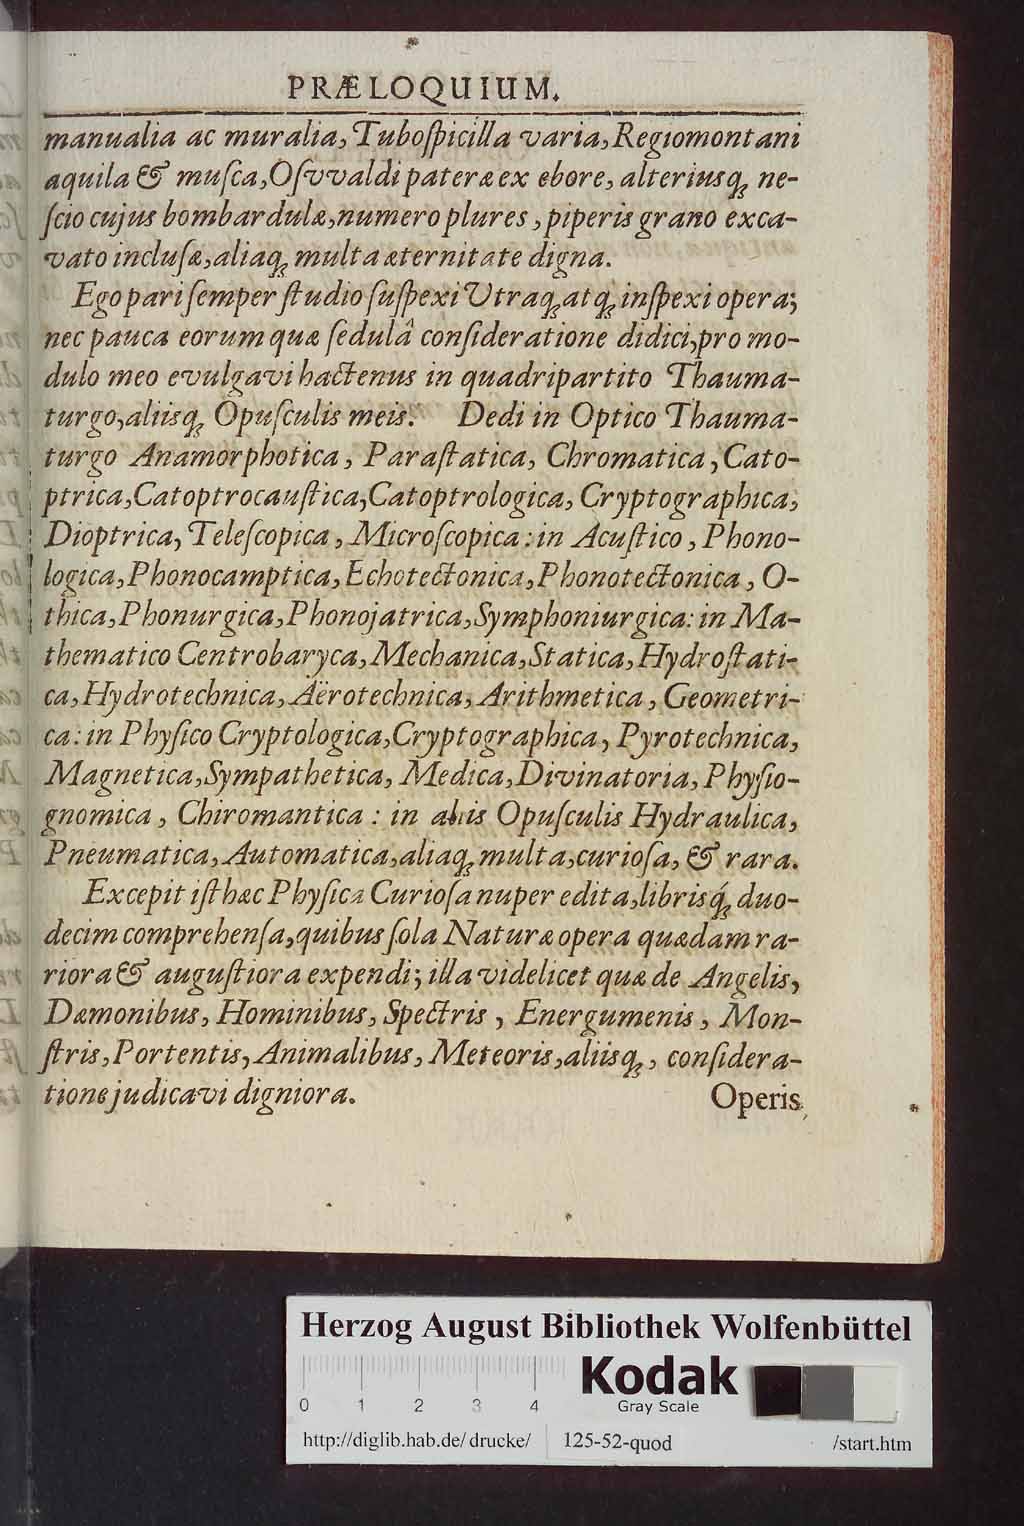 PRÆLOQUIUM.
manualia ac muralia, Tuboſpicilla varia, Regiomontani
aquila & muſca, Oſvvaldi pateræ ex ebore, alteriusq; ne-
ſcio cujus bombardulæ, numero plures, piperis grano exca-
vato incluſæ, aliaq; multa æternitate digna.
Ego pari ſemper ſtudio ſuſpexi Utraq; atq; inſpexi opera;
nec pauca eorum quæ ſedulâ conſideratione didici, pro mo-
dulo meo evulgavi hactenus in quadripartito Thauma-
turgo, aliisq; Opuſculis meis. Dedi in Optico Thauma-
turgo Anamorphotica, Paraſtatica, Chromatica, Cato-
ptrica, Catoptrocauſtica, Catoptrologica, Cryptographica,
Dioptrica, Teleſcopica, Microſcopica: in Acuſtico, Phono-
logica, Phonocamptica, Echotectonica, Phonotectonica, O-
thica, Phonurgica, Phonojatrica, Symphoniurgica: in Ma-
thematico Centrobaryca, Mechanica, Statica, Hydroſtati-
ca, Hydrotechnica, Aërotechnica, Arithmetica, Geometri-
ca: in Phyſico Cryptologica, Cryptographica, Pyrotechnica,
Magnetica, Sympathetica, Medica, Divinatoria, Phyſio-
gnomica, Chiromantica: in aliis Opuſculis Hydraulica,
Pneumatica, Automatica, aliaq; multa, curioſa, & rara.
Excepit iſthæc Phyſica Curioſa nuper edita, librisq́; duo-
decim comprehenſa, quibus ſola Naturæ opera quædam ra-
riora & auguſtiora expendi; illa videlicet quæ de Angelis,
Dæmonibus, Hominibus, Spectris, Energumenis, Mon-
ſtris, Portentis, Animalibus, Meteoris, aliisq;, conſidera-
tione judicavi digniora.
Operis
Herzog August Bibliothek Wolfenbüttel
Kodak
Gray Scale
0 1 2 3 4
http://diglib.hab.de/drucke/ 125-52-quod /start.htm